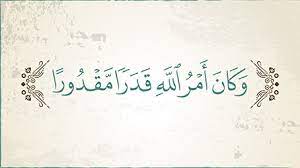 وَكَانَ أَمْرُ ٱللَّهِ قَدَرًا مَّقْدُورًا